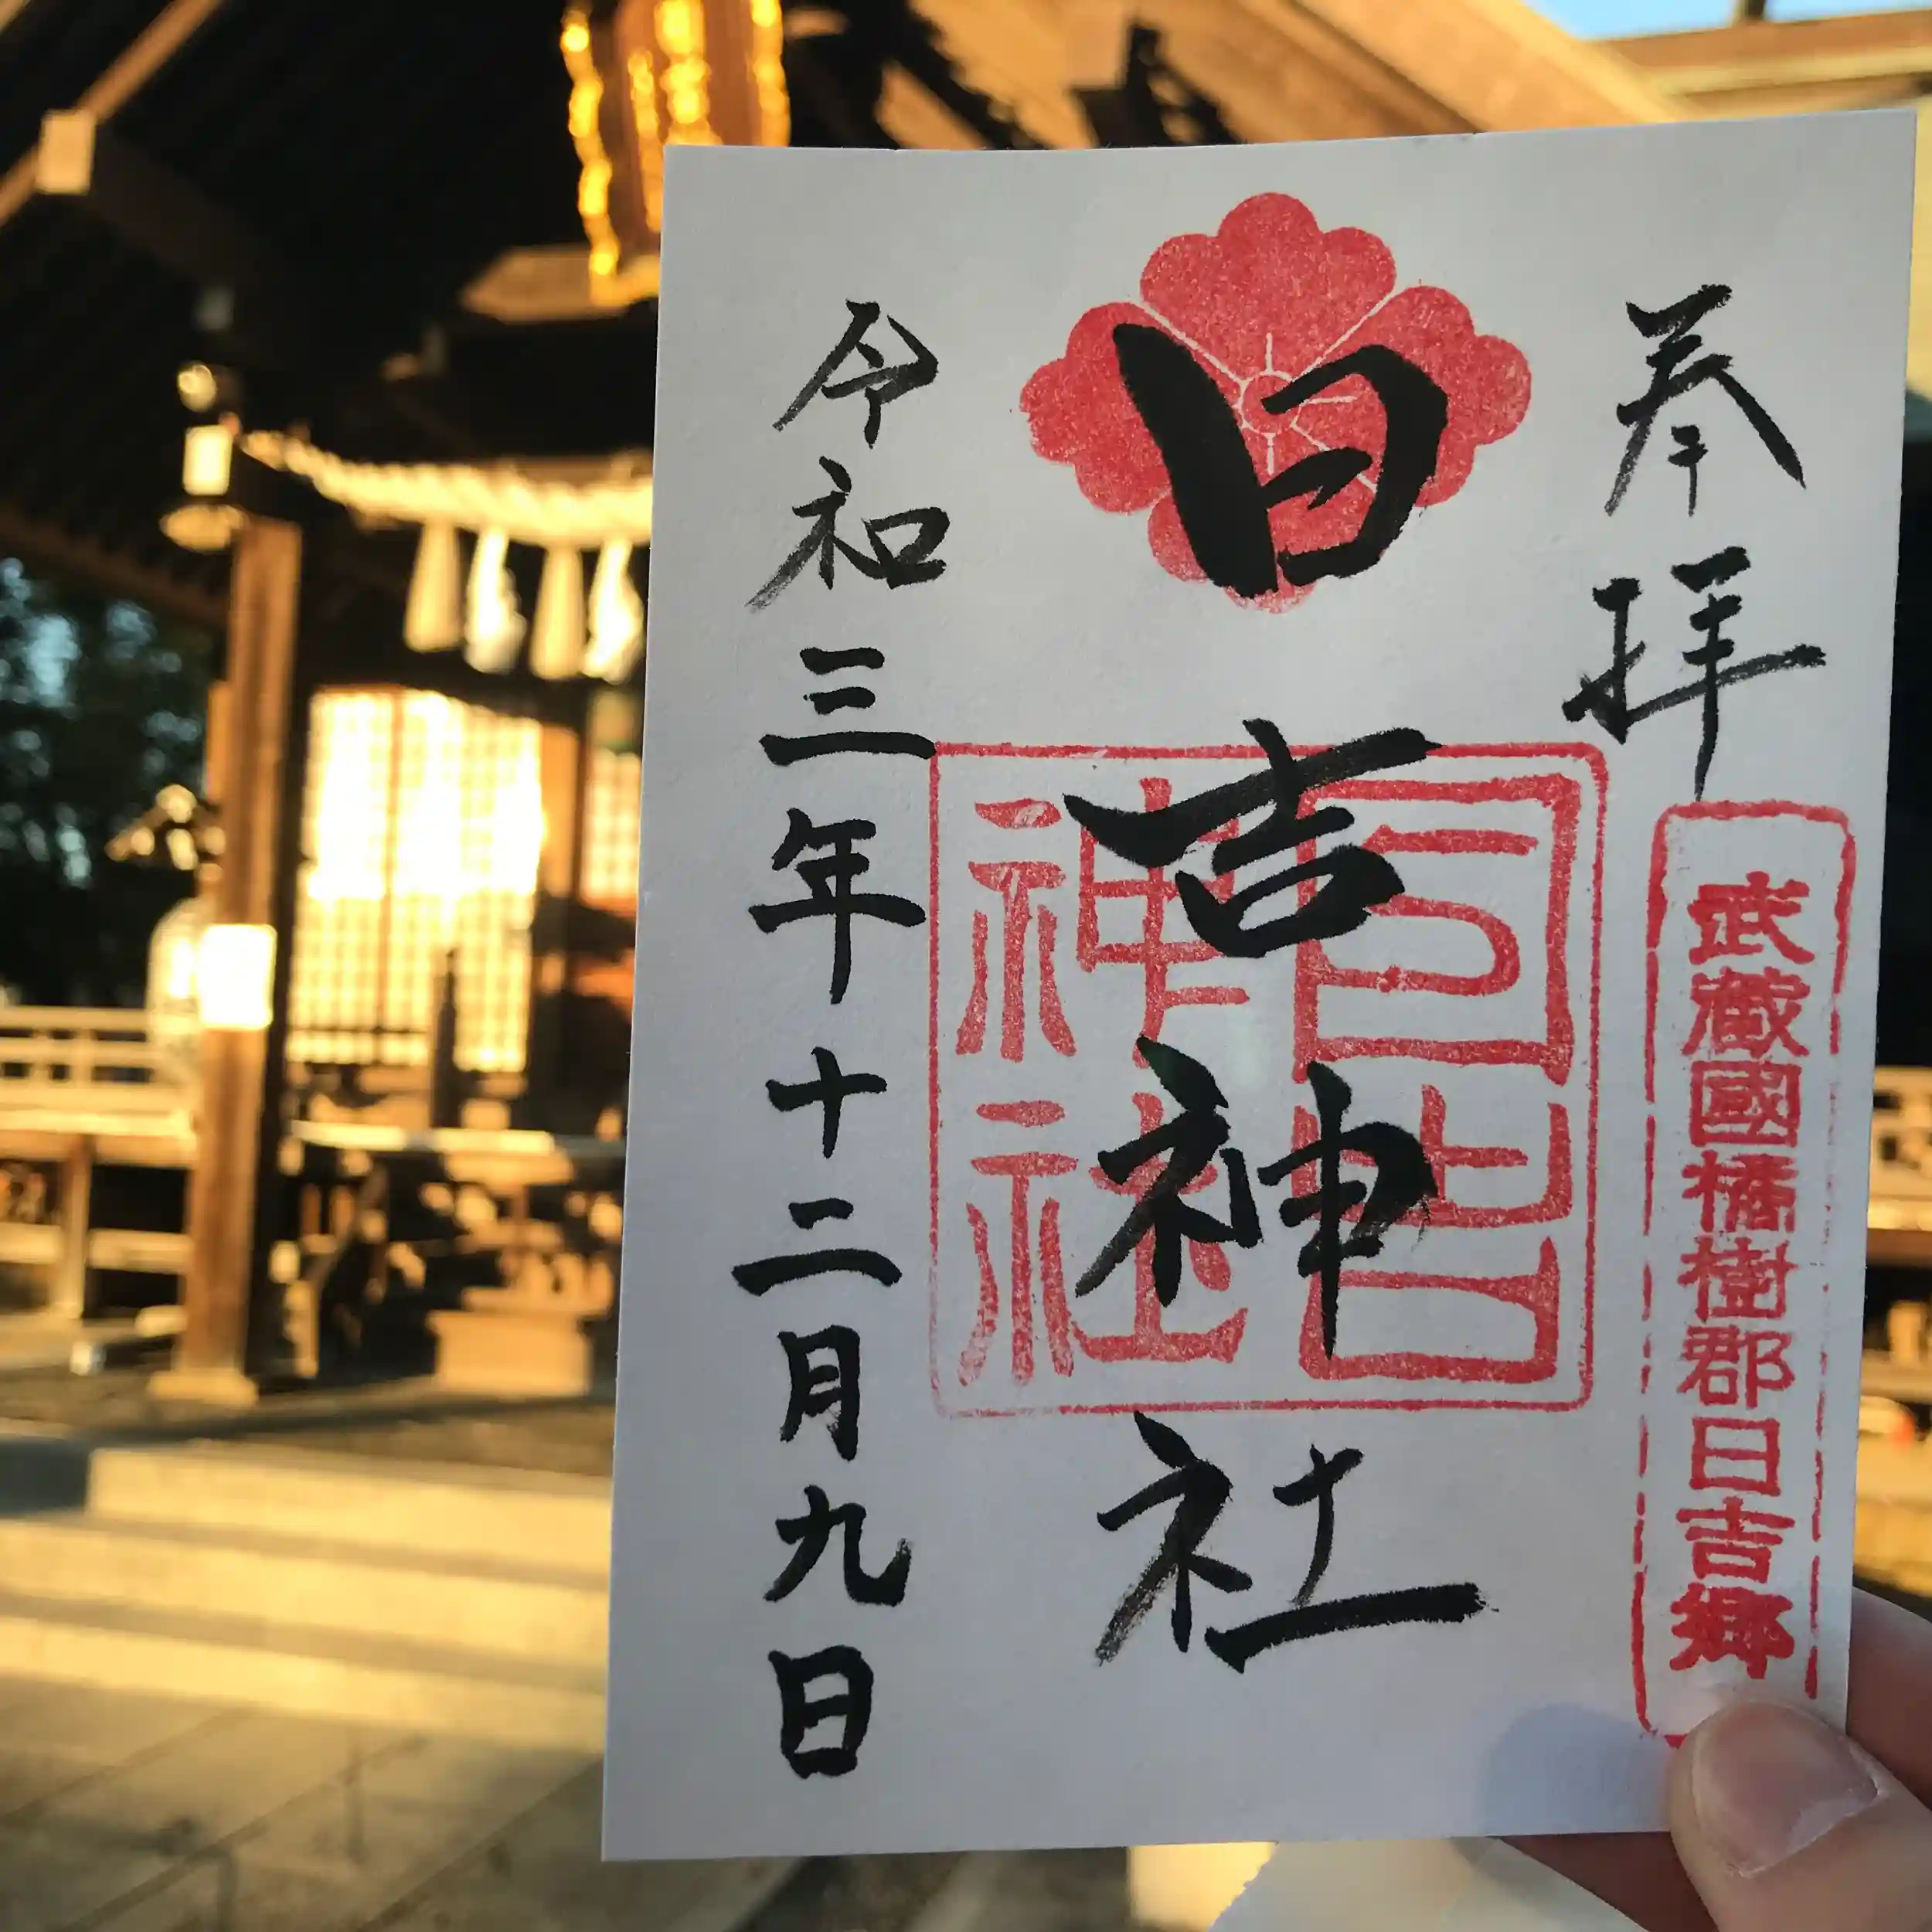 奉拝
武蔵國橘樹郡日吉郷
日吉神社
日吉
神社
令和三年十二月九日